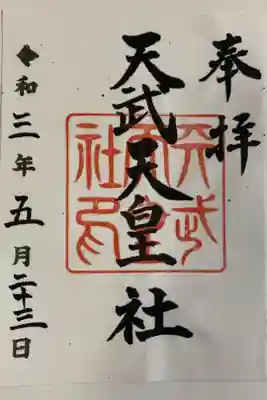 奉拝
天武天皇社
令和三年五月二十三日
天武天皇社印